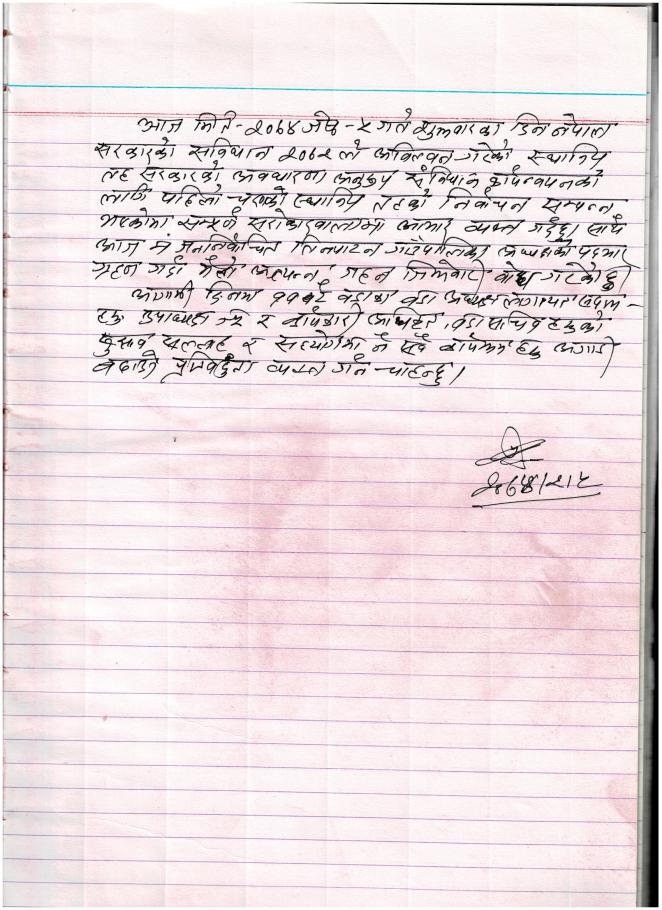 आज मिति - २०७४ जेष्ठ - ५ गते शुक्रवारका दिन नेपाल
सरकारको संविधान २०७२ ले अविलम्वन गरेको स्थानिय
तह सरकारको अवधारणा अनुरुप संविधान कार्यन्वयनको
लागि पहिलो चरणको स्थानिय तहको निर्वाचन सम्पन्न
भएकोमा सम्पूर्ण सरोकारवालामा आभार व्यक्त गर्दछु। साथै
आज म जननिर्वाचित तिनपाटन गाउँपालिका अध्यक्षको पदभार
ग्रहण गर्दा मैले अत्यन्त गहन जिम्मेवारी बोध गरेको छु
अगामी दिनमा ११ वटै वडाका वडा अध्यक्ष लगायत
हरु उपाध्यक्ष ज्यू र कार्यकारी अधिकृत, वडा सचिव हरुको
सुझाव सल्लाह र सहयोगमा नै सबै कार्यक्रम हरु अगाडी
बढाउने प्रतिवद्धता व्यक्त गर्न चाहन्छु।
२०७४/२/५